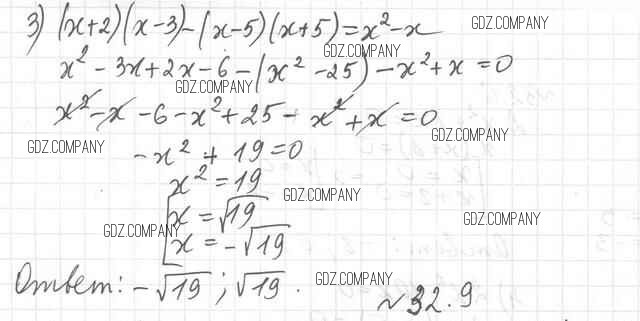 3) (x+2)(x-3)-(x-5)(x+5)=x²-x
GDZ.COMPANY
GDZ.COMPANY
x²-3x+2x-6-(x²-25)-x²+x=0
GDZ.COMPANY
x²-x-6-x²+25-x²+x=0
GDZ.COMPANY
GDZ.COMPANY
-x²+19=0
x²=19
GDZ.COMPANY
x=√19
GDZ.COMPANY
GDZ.COMPANY
x=-√19
Ответ: -√19; √19.
GDZ.COMPANY
~32.9